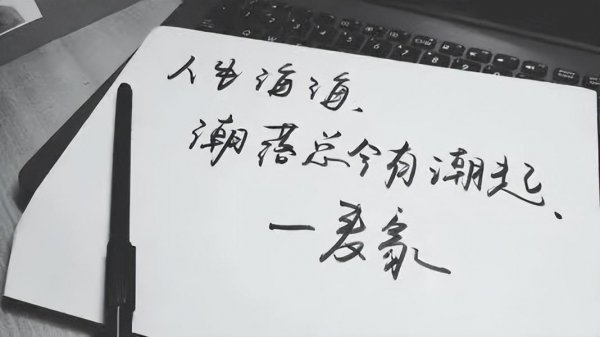 人生海海、
潮落总会有潮起、
—麦家